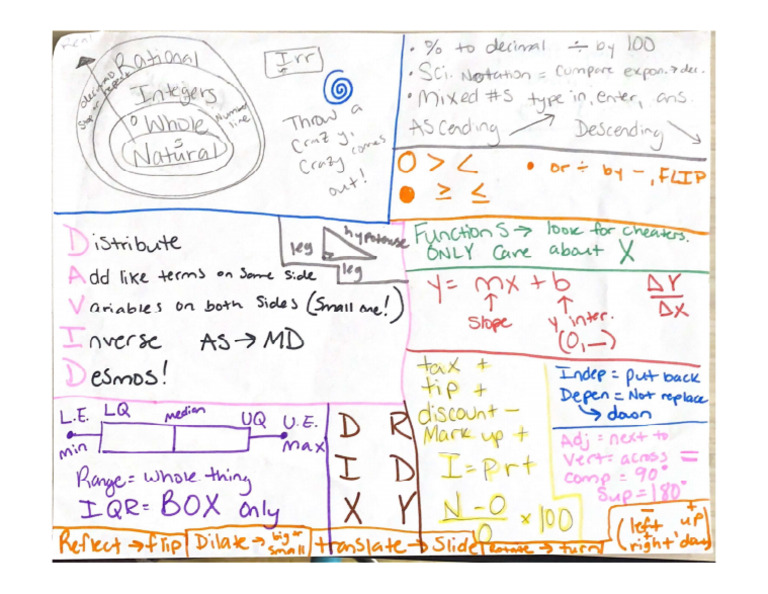 real
Rational
decimals
stop or repeat
Integers
Number line
Whole
Natural
Irr
Throw a
crazy,
crazy comes
out!
• % to decimal ÷ by 100
• Sci. Notation = compare expon. → dec.
• Mixed #s type in, enter, ans.
Ascending Descending
O > < • or ÷ by -, FLIP
● ≥ ≤
Distribute
Add like terms on same side
Variables on both sides (Small one!)
Inverse AS → MD
Desmos!
leg
hypotenuse
leg
Functions → look for cheaters.
ONLY care about X
y = mx + b
slope
y inter.
(0, _)
ΔY
ΔX
tax +
tip +
discount -
Mark up +
I = prt
N-O
O
x 100
Indep = put back
Depen = Not replace
→ down
Adj = next to
Vert = across =
comp = 90°
Sup = 180°
L.E. LQ median UQ U.E.
min max
Range = whole thing
IQR = BOX only
D R
I D
X Y
Reflect → flip
Dilate → big or small
translate → Slide
rotate → turn
- +
(left, up
+ -
right, down)